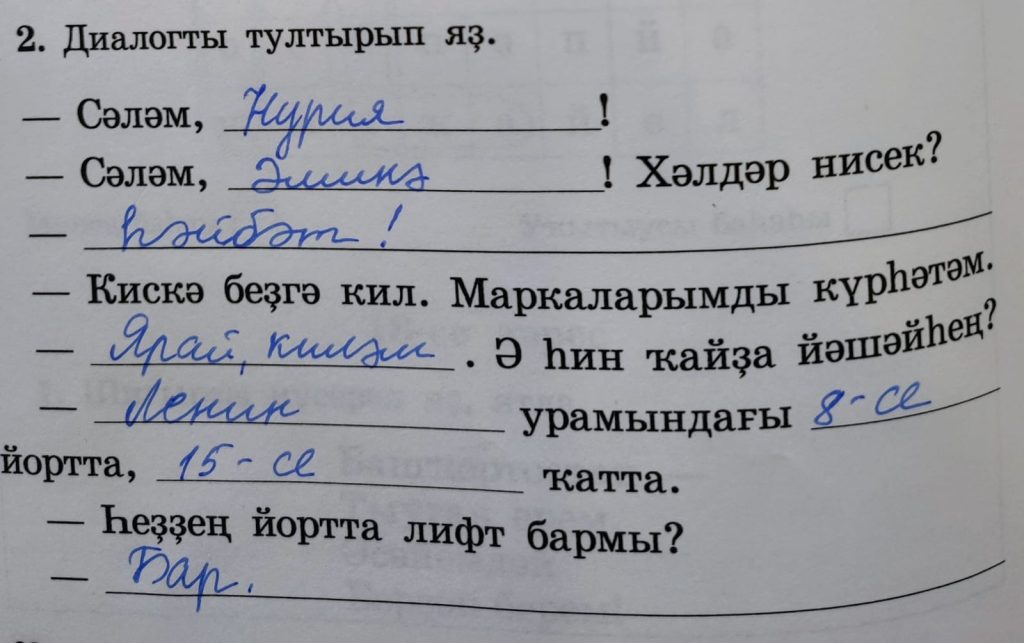 2. Диалогты тултырып яҙ.
— Сәләм, Нурия!
— Сәләм, Әминә! Хәлдәр нисек?
— Һәйбәт!
— Кискә беҙгә кил. Маркаларымды күрһәтәм.
— Ярай, киләм. Ә һин ҡайҙа йәшәйһең?
— Ленин урамындағы 8-се
йортта, 15-се ҡатта.
— Һеҙҙең йортта лифт бармы?
— Бар.